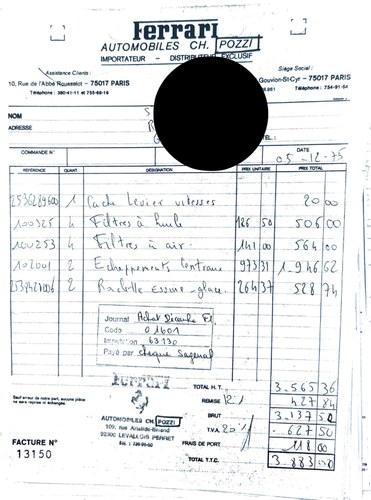 Ferrari
AUTOMOBILES CH. POZZI
IMPORTATEUR - DISTRIBUTEUR EXCLUSIF
Assistance Clients :
10, Rue de l'Abbé Rousselot - 75017 PARIS
Téléphone : 380-41-11 et 755-66-16
Siège Social :
Gouvion-St-Cyr - 75017 PARIS
Téléphone : 754-91-64
NOM S
ADRESSE
COMMANDE N° DATE
05-12-75
RÉFÉRENCE QUANT. DÉSIGNATION PRIX UNITAIRE PRIX TOTAL
1 Cache Levier vitesses 20 00
100325 4 Filtres à huile 126 50 506 00
100253 4 Filtres à air 141 00 564 00
102001 2 Echappements Centraux 973 31 1-946 62
2 Raclette Essuie-glace 264 37 528 74
Journal Achat
Code 01601
Imputation 63130
Payé par chèque
Ferrari
AUTOMOBILES CH. POZZI
109, rue Aristide-Briand
92300 LEVALLOIS PERRET
Sauf erreur de notre part, aucune pièce
ne sera reprise ni échangée.
FACTURE N°
13150
TOTAL H.T. 3-565 36
REMISE 12% 427 84
BRUT 3-137 50
T.V.A. 20% 627 50
FRAIS DE PORT 118 00
TOTAL T.T.C. 3-883